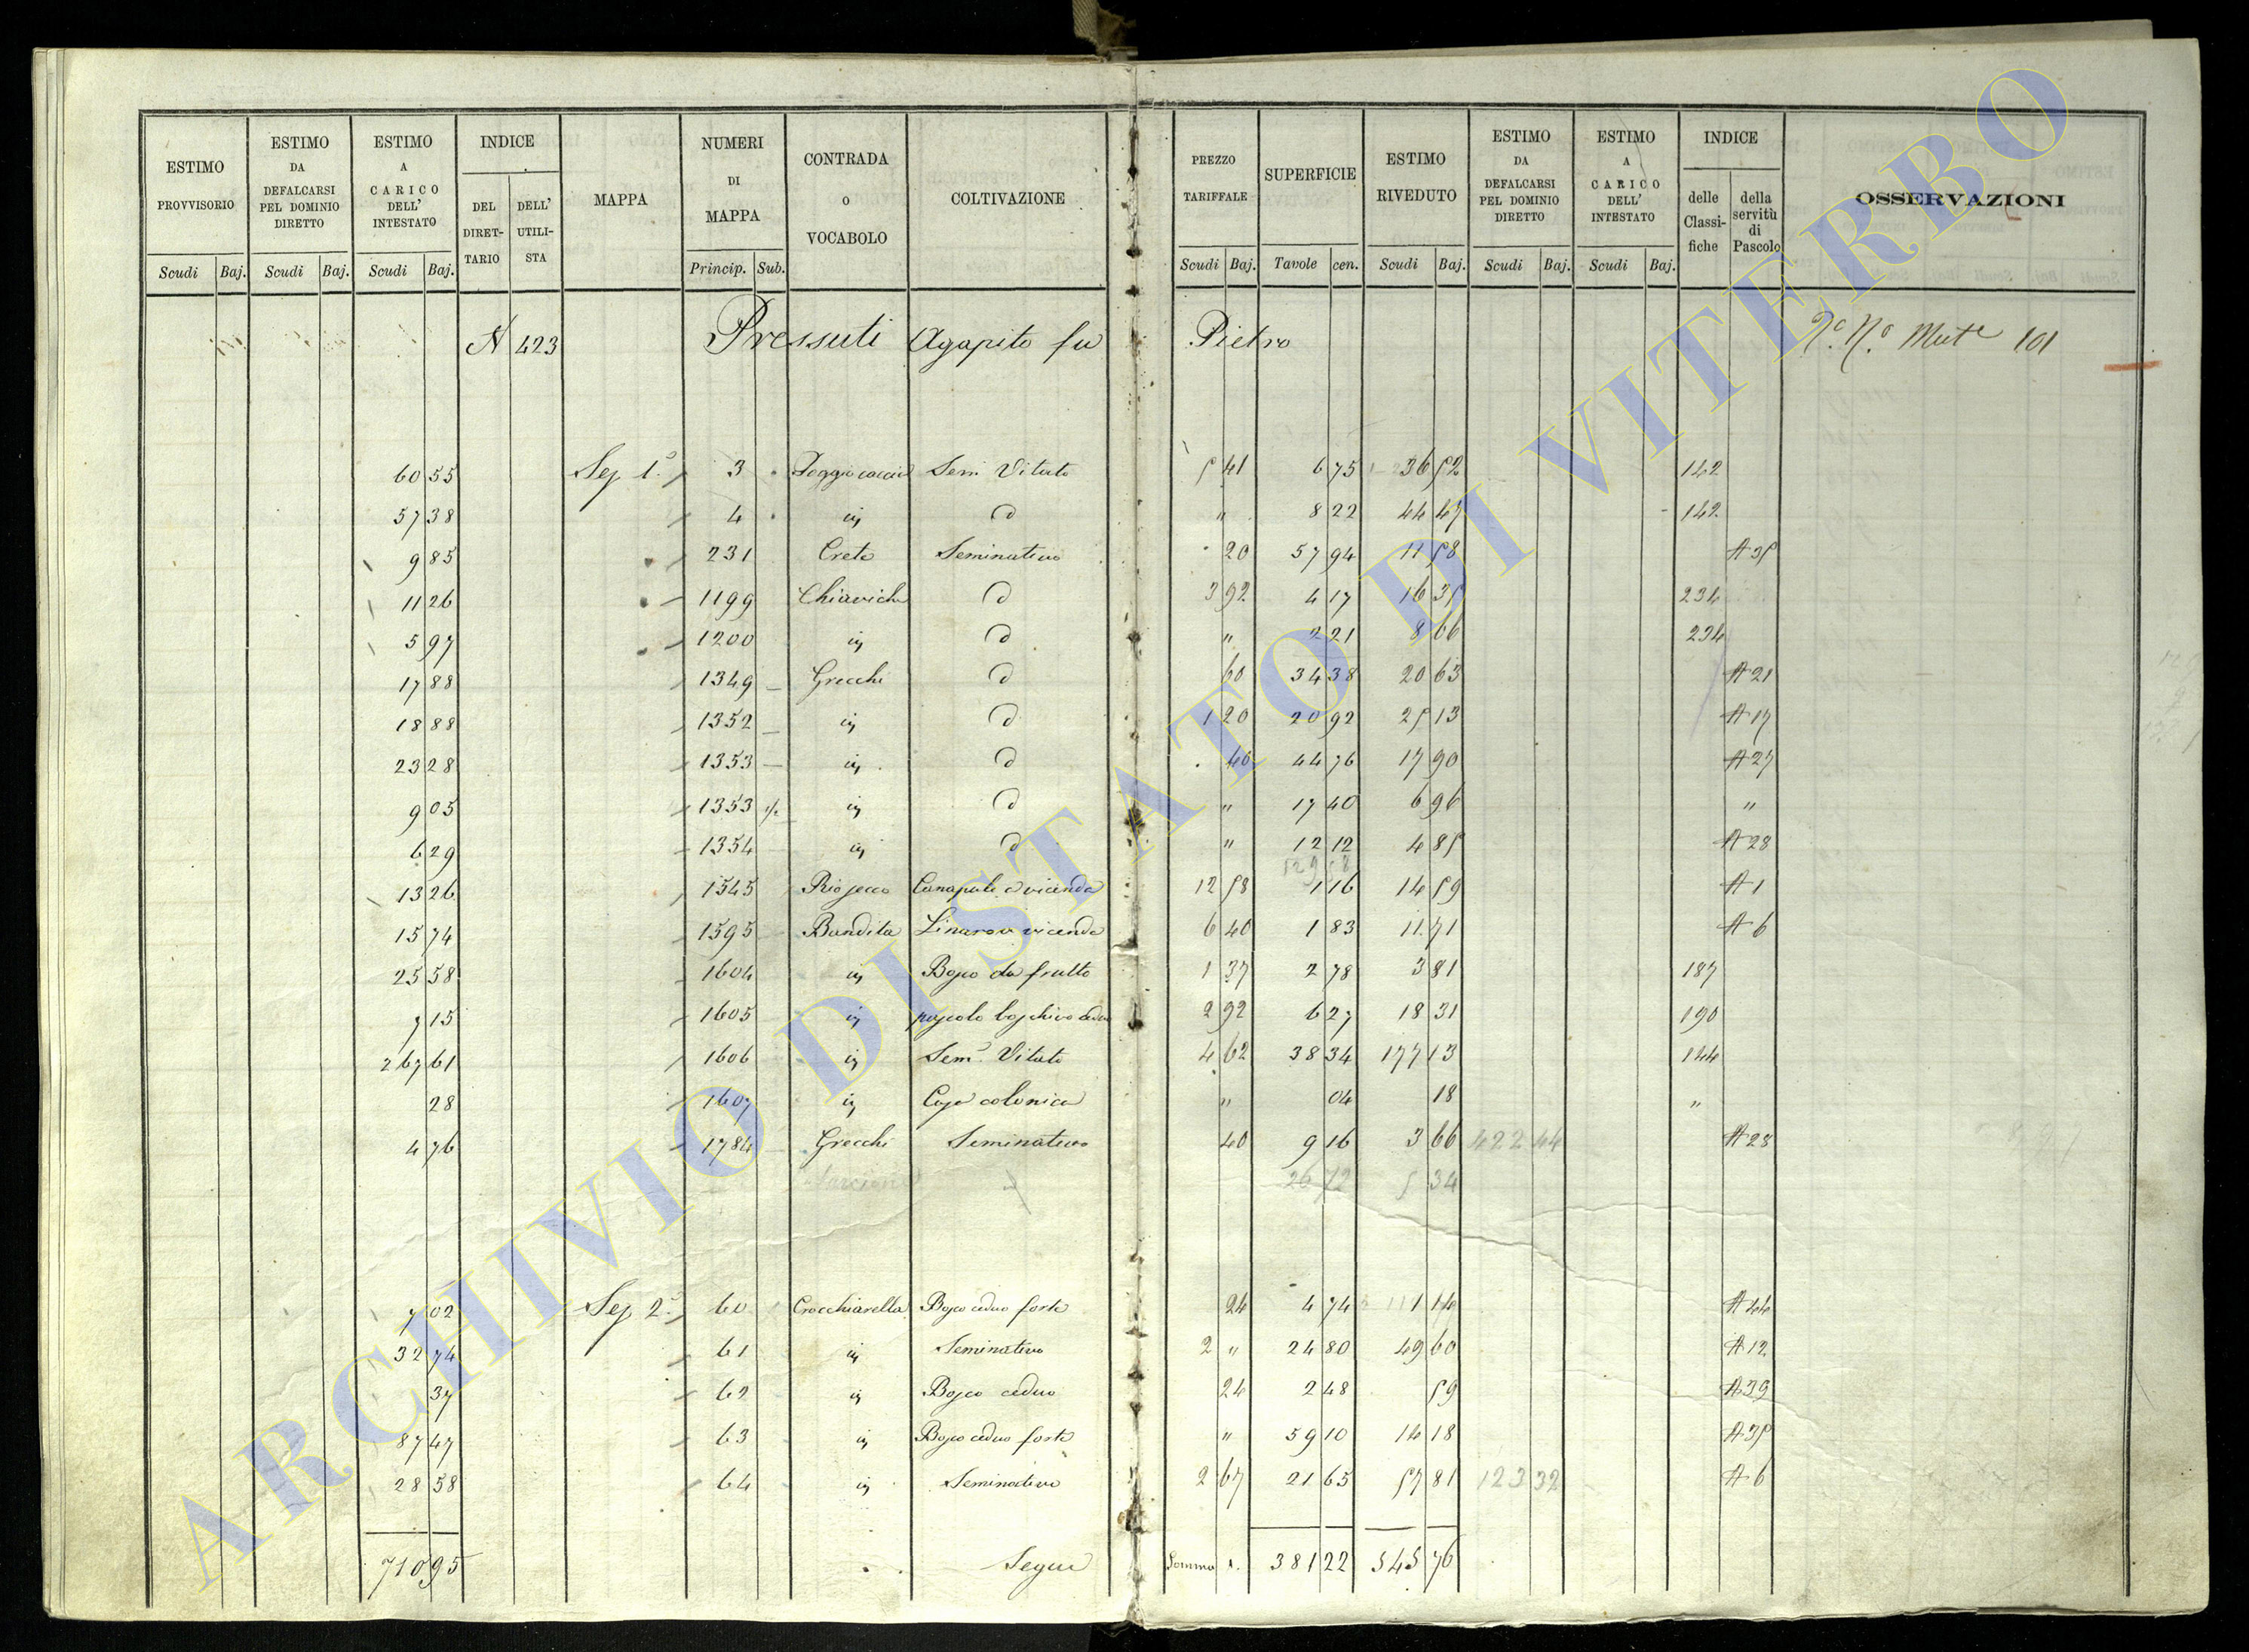 ESTIMO PROVVISORIO | ESTIMO DA DEFALCARSI PEL DOMINIO DIRETTO | ESTIMO A CARICO DELL' INTESTATO | INDICE DEL DIRET-TARIO | DELL' UTILI-STA | MAPPA | NUMERI DI MAPPA | CONTRADA O VOCABOLO | COLTIVAZIONE | PREZZO TARIFFALE | SUPERFICIE | ESTIMO RIVEDUTO | ESTIMO DA DEFALCARSI PEL DOMINIO DIRETTO | ESTIMO A CARICO DELL' INTESTATO | INDICE delle Classi-fiche | della servitù di Pascolo | OSSERVAZIONI
Scudi Baj. Scudi Baj. Scudi Baj. Princip. Sub. Scudi Baj. Tavole cen. Scudi Baj. Scudi Baj. Scudi Baj.
A 423 Pressuti Agapito fu Pietro Mut.e 101
60 55 Sez 1ª 3 Sem Vitato 5 41 6 75 36 52 142
57 38 4 id d 〃 8 22 44 47 142
9 85 231 Crete Seminativo 20 57 94 11 58 A 35
11 26 1199 Chiaviche d 3 92 4 17 16 35 234
5 97 1200 id d 〃 2 21 8 66 234
17 88 1349 Grecchi d 60 34 38 20 63 A 21
18 88 1352 id d 1 20 20 92 25 13 A 17
23 28 1353 id d 40 44 76 17 90 A 27
9 05 1353 ½ id d 〃 17 40 6 96 〃
6 29 1354 id d 〃 12 12 4 85 A 28
13 26 1545 Rio secco Canapule a vicenda 12 58 1 16 14 59 A 1
15 74 1595 Bandita Linaro a vicenda 6 40 1 83 11 71 A 6
25 58 1604 id Bosco da frutto 1 37 2 78 3 81 187
7 15 1605 id pascolo boschivo ceduo 2 92 6 27 18 31 190
267 61 1606 id Sem. Vitato 4 62 38 34 177 13 144
28 1607 id Casa colonica 〃 04 18 〃
4 76 1784 Grecchi Seminativo 40 9 16 3 66 422 44 A 28
26 72 5 34
7 02 Sez 2ª 60 Crocchiarella Bosco ceduo forte 24 4 74 1 14 A 44
32 74 61 id Seminativo 2 〃 24 80 49 60 A 12
37 62 id Bosco ceduo 24 2 48 59 A 39
87 47 63 id Bosco ceduo forte 〃 59 10 14 18 A 35
28 58 64 id Seminativo 2 67 21 65 57 81 123 32 A 6
710 95 Segue Somma 381 22 545 76
ARCHIVIO DI STATO DI VITERBO